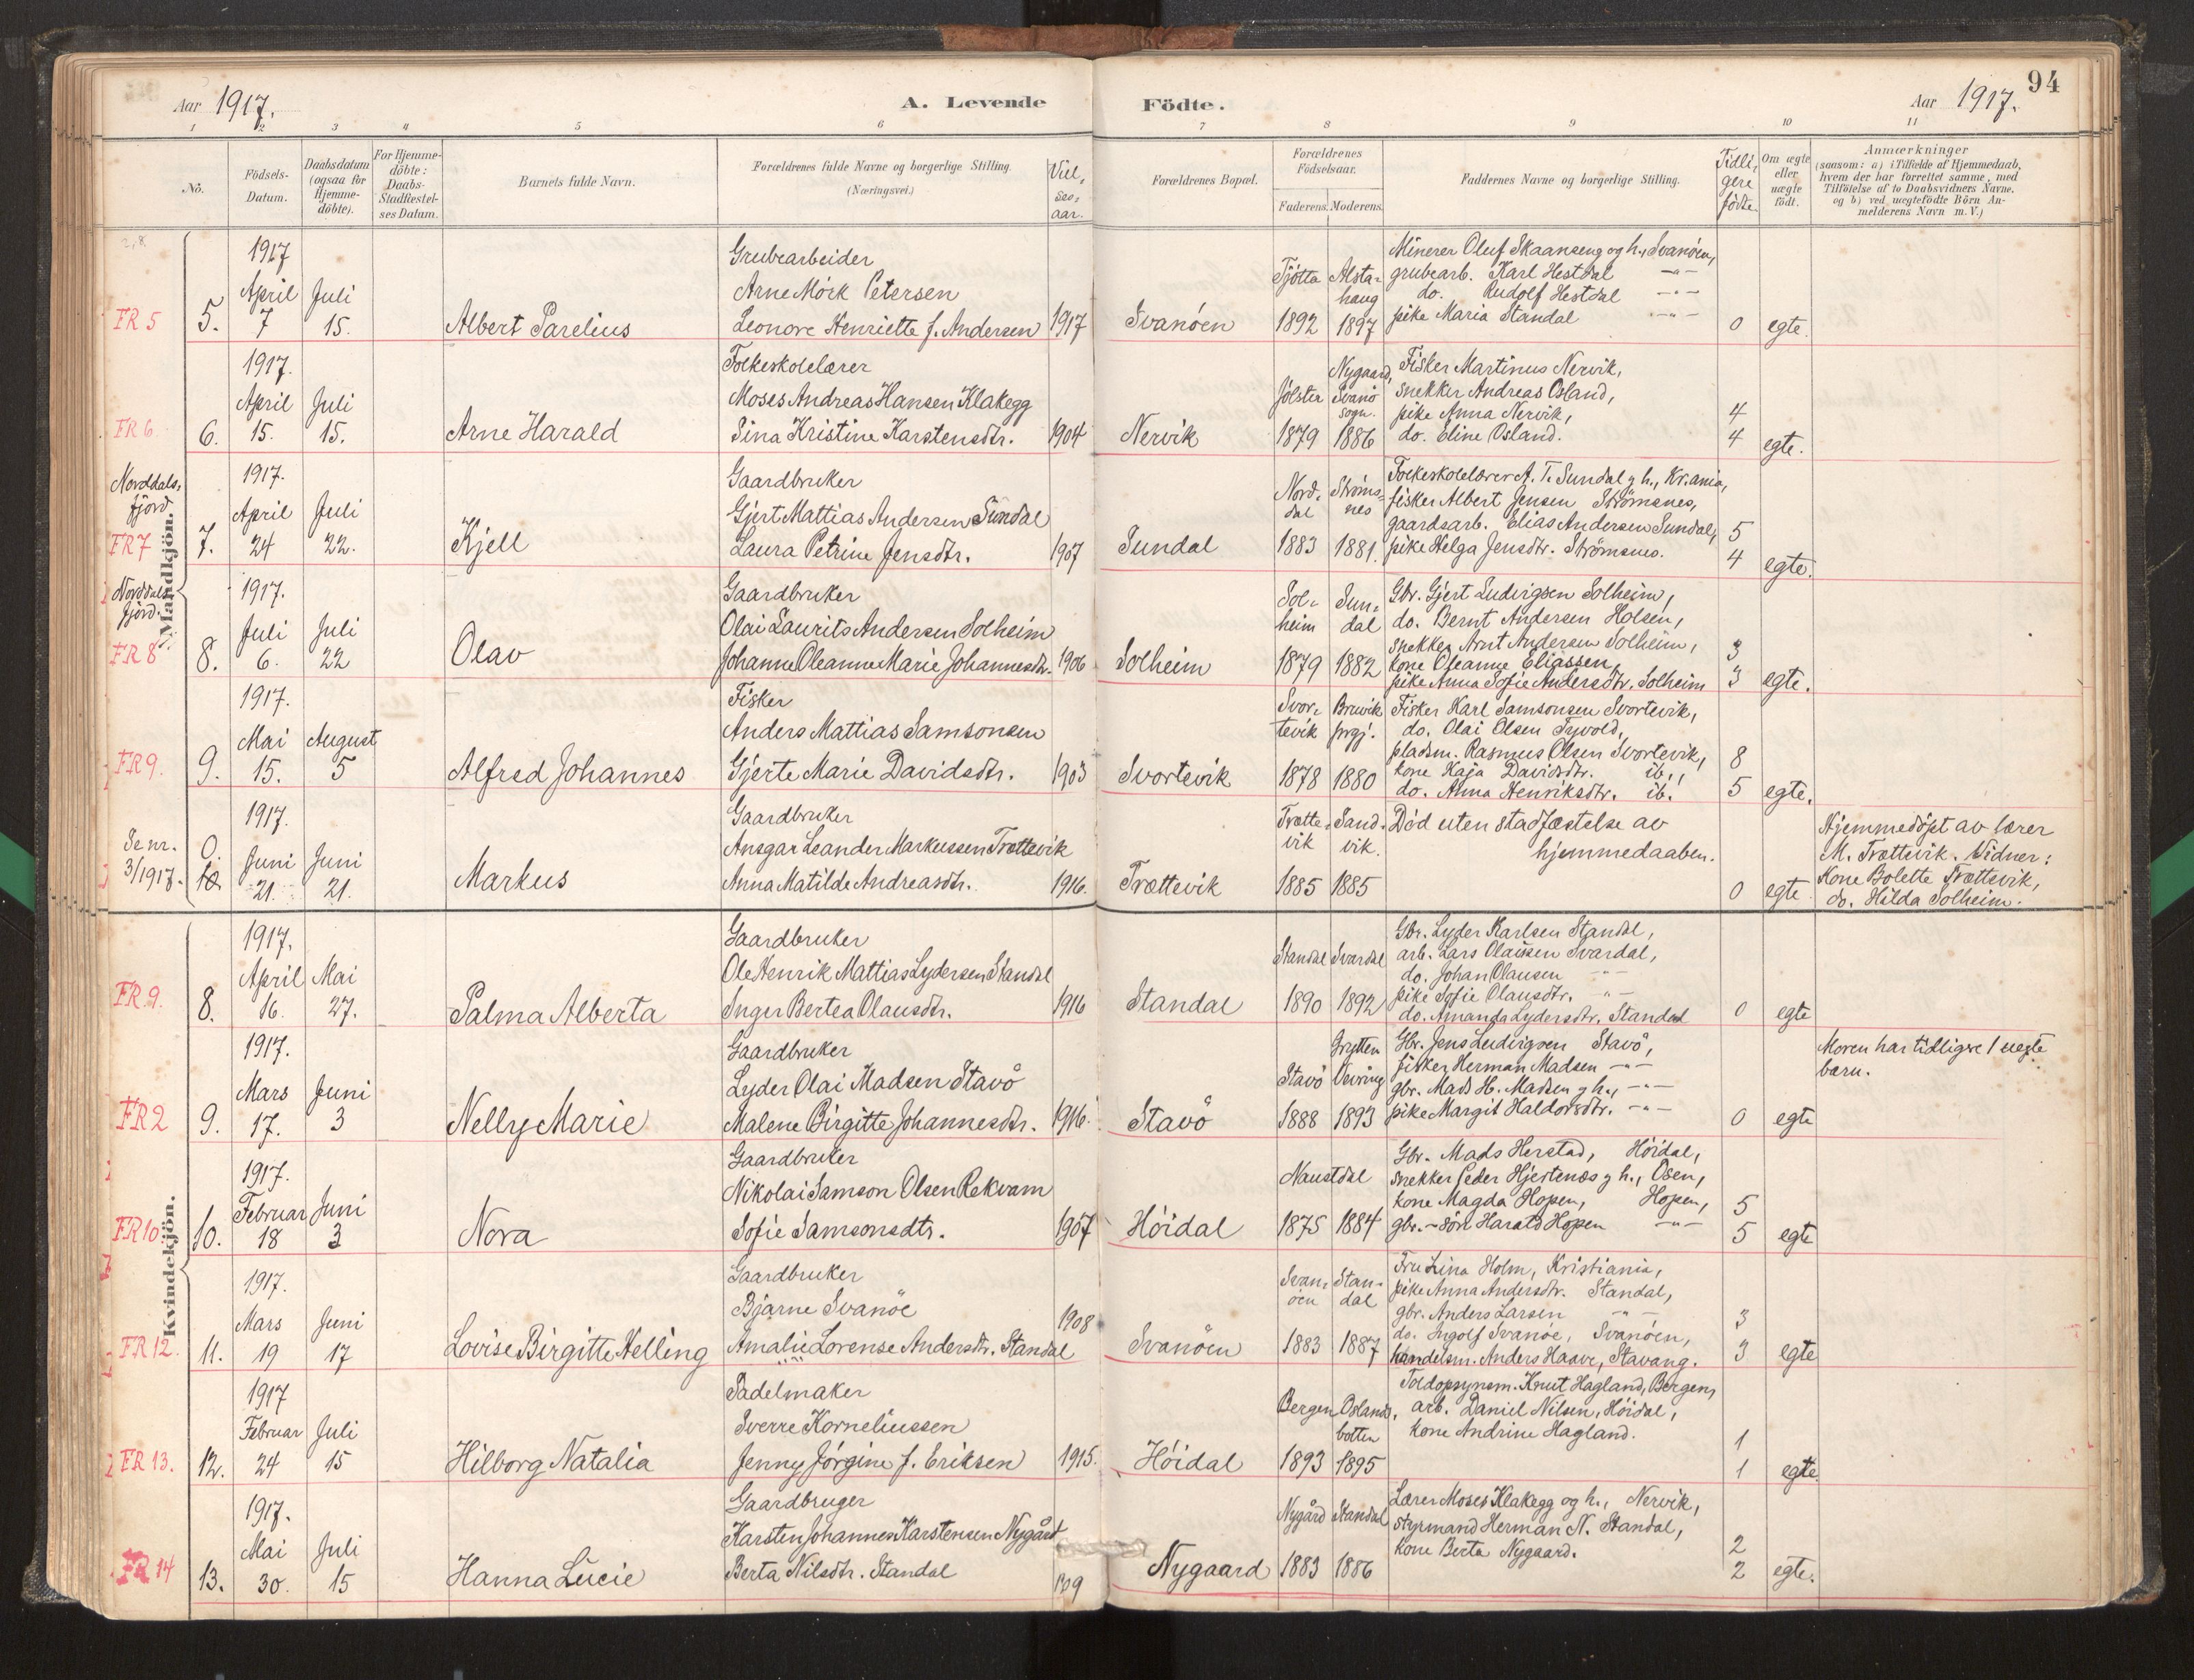 Aar 1917.
A. Levende
Födte.
Aar 1917.
94
1 2 3 4 5 6 7 8 9 10 11
No.
Födsels-
Datum.
Daabsdatum
(ogsaa for
Hjemme-
döbte).
For Hjemme-
döbte:
Daabs-
Stadfæstel-
ses Datum.
Barnets fulde Navn.
Forældrenes fulde Navne og borgerlige Stilling.
(Næringsvei.)
Viel,
ses,
aar.
Forældrenes Bopæl.
Forældrenes
Födselsaar.
Faderens. Moderens.
Faddernes Navne og borgerlige Stilling.
Tidli,
gere
födte.
Om ægte
eller
uægte
födt.
Anmærkninger
(saasom: a) i Tilfælde af Hjemmedaab,
hvem der har forrettet samme, med
Tilföielse af to Daabsvidners Navne,
og b) ved uægtefödte Börn An-
melderens Navn m. V.)
Mandkjön.
FR 5
5.
1917
April
7
Juli
15.
Albert Parelius
Grubearbeider
Arne Mörk Petersen
Leonore Henriette f. Andersen
1917
Svanöen
Tjötta
1892
Alsta-
haug
1897
Minerer Oluf Skaanseng og h., Svanöen,
grubearb. Karl Hestdal -"-
do. Rudolf Hestdal -"-
pike Maria Standal -"-
0
egte.
FR 6
6.
1917.
April
15.
Juli
15.
Arne Harald
Folkeskolelærer
Moses Andreas Hansen Klakegg
Sina Kristine Karstensdtr.
1904
Nervik
Jölster
1879
Nygaard,
Svanö
sogn.
1886
Fisker Martinus Nervik,
snekker Andreas Osland,
pike Anna Nervik,
do. Eline Osland.
4
4
egte.
Norddals,
fjord
FR 7
7.
1917.
April
24
Juli
22.
Kjell
Gaardbruker
Gjert Mattias Andersen Sundal
Laura Petrine Jensdtr.
1907
Sundal
Nord,
dal
1883
Ströms,
nes
1881.
Folkeskolelærer A. T. Sundal g h., Kr.ania,
fisker Albert Jensen Strömsnes,
gaardsarb. Elias Andersen Sundal,
pike Helga Jensdtr. Strömsnes.
5
4
egte.
Norddals,
fjord.
FR 8
8.
1917.
Juli
6.
Juli
22
Olav
Gaardbruker
Olai Laurits Andersen Solheim
Johanne Oleanne Marie Johannesdtr.
1906
Solheim
Sol-
heim
1879
Sun,
dal
1882
Gbr. Gjert Ludvigsen Solheim,
do. Bernt Andersen Holsen,
snekker Arnt Andersen Solheim,
kone Oleanne Eliassen,
pike Anna Sofie Andersdtr. Solheim
3
3
egte.
FR 9.
9.
1917.
Mai
15.
August
5
Alfred Johannes
Fisker
Anders Mattias Samsonsen
Gjerte Marie Davidsdtr.
1903
Svortevik
Svor-
tevik
1878
Bruvik
prgj.
1880
Fisker Karl Samsonsen Svortevik,
do. Olai Olsen Tyvold,
pladsm. Rasmus Olsen Svortevik,
kone Kaja Davidsdtr. ib.,
do. Anna Henriksdtr. ib.
8
5
egte.
Se nr.
3/1917.
0.
10
1917.
Juni
21.
Juni
21.
Markus
Gaardbruker
Ansgar Leander Markussen Trættevik
Anna Matilde Andreasdtr.
1916.
Trættevik
Trætte-
vik
1885
Sand-
vik.
1885
Död uten stadfæstelse av
hjemmedaaben.
0
egte.
Hjemmedöpt av lærer
M. Trættevik. Vidner:
Kone Bolette Trættevik,
do. Hilda Solheim.
Kvindekjön.
FR. 9.
8.
1917.
April
16.
Mai
27.
Palma Alberta
Gaardbruker
Ole Henrik Mattias Lydersen Standal
Inger Bertea Olausdtr.
1916
Standal
Standal
1890
Svardal
1892
Gbr. Lyder Karlsen Standal,
arb. Lars Olaussen Svardal,
do. Johan Olausen -"-
pike Sofie Olausdtr. -"-
do. Amanda Lydersdtr. Standal
0
egte
FR 2
9.
1917.
Mars
17.
Juni
3
Nelly Marie
Gaardbruker
Lyder Olai Madsen Stavö
Malene Birgitte Johannesdtr.
1916.
Stavö
Stavö
1888
Grytten
Vevring
1893
Gbr. Jens Ludvigsen Stavö,
fisker Herman Madsen -"-
gbr. Mads H. Madsen g h., -"-
pike Margit Haldorsdtr. -"-
0
egte
Moren har tidligere 1 uegte
barn.
FR 10
10.
1917.
Februar
18
Juni
3
Nora
Gaardbruker
Nikolai Samson Olsen Rekvam
Sofie Samsonsdtr.
1907
Höidal
Naustdal
1875
1884
Gbr. Mads Herstad, Höidal,
snekker Peder Hjertenæs g h., Osen,
kone Magda Hopen, Hopen,
gbr.-sön Harald Hopen -"-
5
5
egte
FR 12.
11.
1917.
Mars
19
Juni
17
Lovise Birgitte Helling
Gaardbruker
Bjarne Svanöe
Amalie Lorense Andersdtr. Standal
1908
Svanöen
Svan,
öen
1883
Stan-
dal
1887
Fru Lina Holm, Kristiania,
pike Anna Andersdtr. Standal,
gbr. Anders Larsen -"-
do. Ingolf Svanöe, Svanöen,
handelsm. Anders Haave, Stavang.
3
3
egte
FR 13.
12.
1917
Februar
24
Juli
15
Hilborg Natalia
Sadelmaker
Sverre Korneliussen
Jenny Jörgine f. Eriksen
1915.
Höidal
Bergen
1893
Oslands,
botten
1895
Toldopsynsm. Knut Hagland, Bergen,
arb. Daniel Nilsen, Höidal,
kone Andrine Hagland.
1
1
egte.
FR 14
13.
1917.
Mai
30.
Juli
15
Hanna Lucie
Gaardbruger
Karsten Johannes Karstensen Nygård
Berta Nilsdtr. Standal
1909
Nygaard
Nygård
1883
Standal
1886
Lærer Moses Klakegg og h., Nervik,
styrmand Herman N. Standal,
kone Berta Nygaard.
2
2
egte.